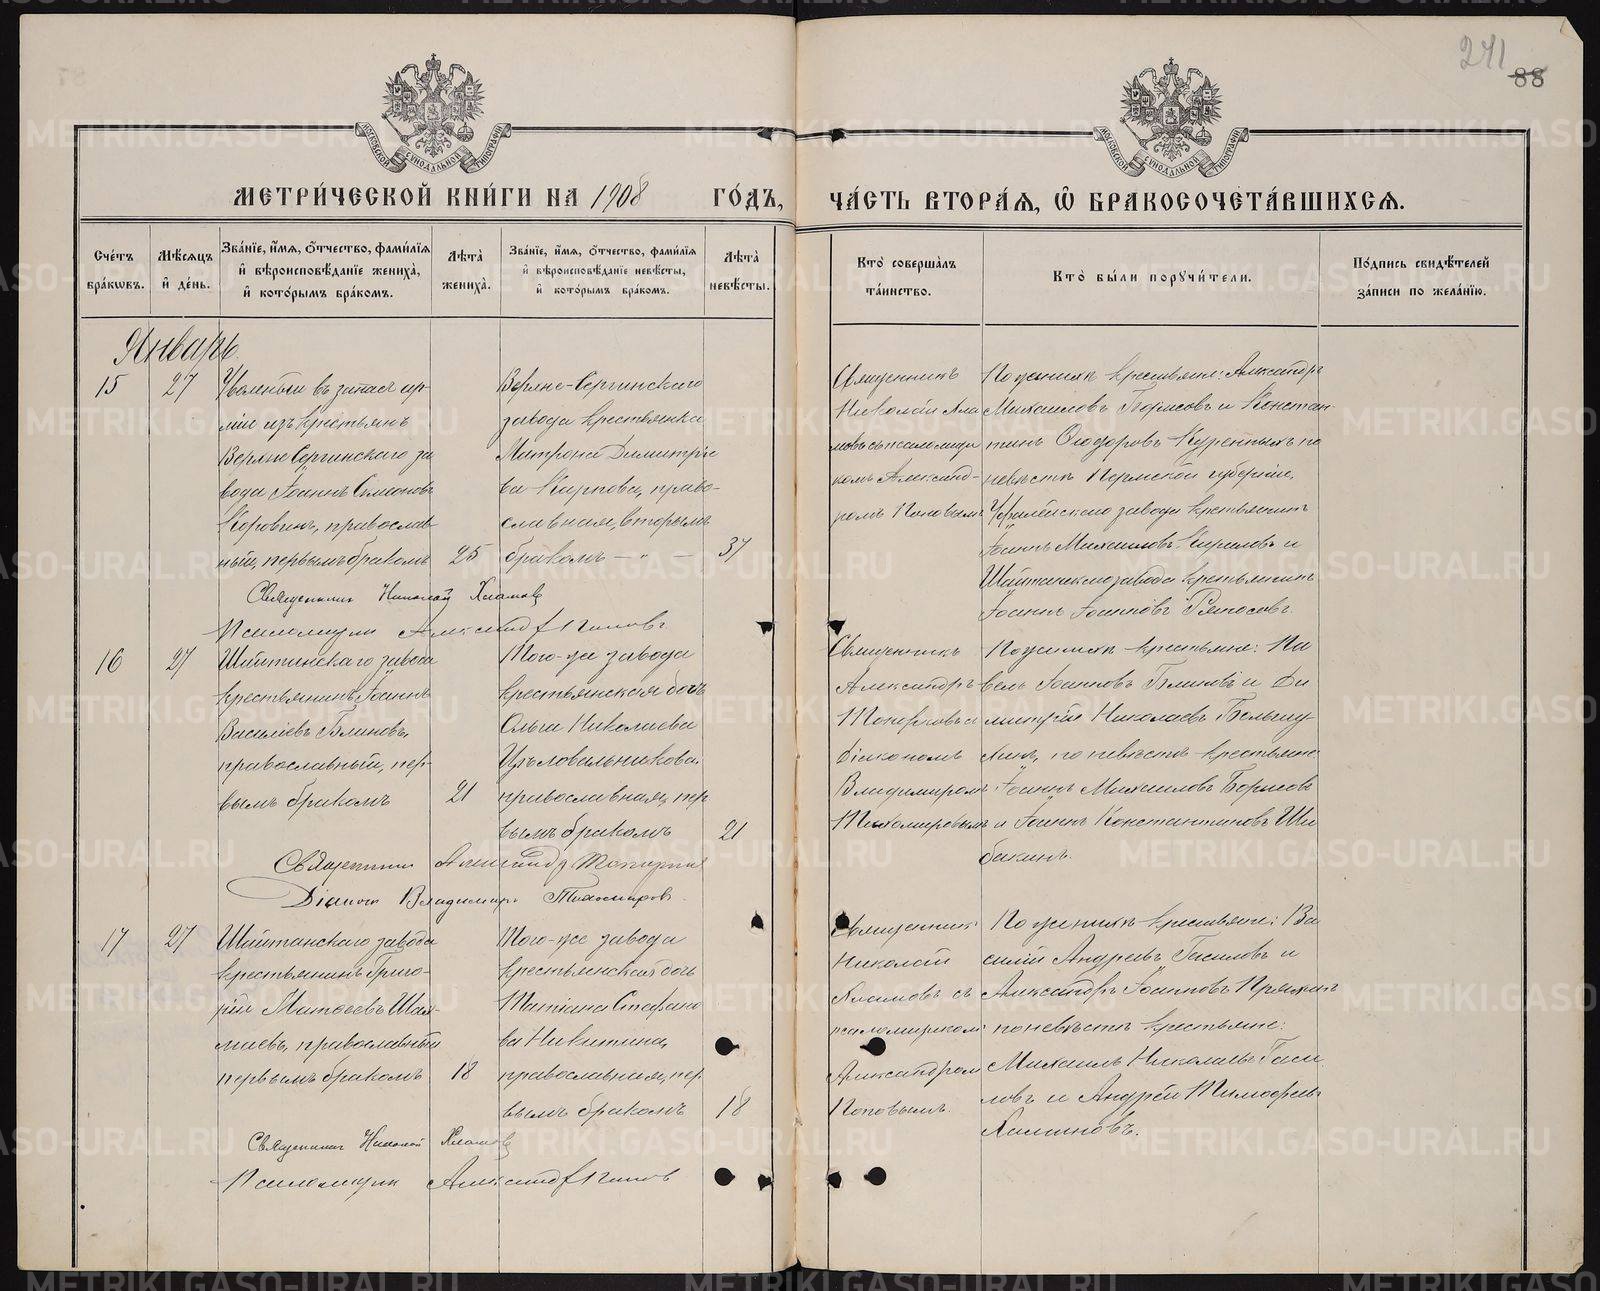 271
88
МОСКОВСКОЙ СУНОДАЛЬНОЙ ТИПОГРАФІИ
МОСКОВСКОЙ СУНОДАЛЬНОЙ ТИПОГРАФІИ
МЕТРИ́ЧЕСКОЙ КНИ́ГИ НА 1908 ГО́ДЪ,
ЧА́СТЬ ВТОРА́Ѧ, Ѽ БРАКОСОЧЕТА́ВШИХСѦ.
Сче́тъ бра́кѡвъ.
Мѣ́сѧцъ и҆ де́нь.
Зва́нїе, и҆́мѧ, ѻ҆́тчество, фами́лїѧ и҆ вѣроисповѣ́данїе жениха̀, и҆ кото́рымъ бра́комъ.
Лѣ́та жениха̀.
Зва́нїе, и҆́мѧ, ѻ҆́тчество, фами́лїѧ и҆ вѣроисповѣ́данїе невѣ́сты, и҆ кото́рымъ бра́комъ.
Лѣ́та невѣ́сты.
Кто̀ соверша́лъ та́инство.
Кто̀ бы́ли порꙋчи́тели.
По́дпись свидѣ́телей за́писи по жела́нїю.
Январь
15
27
Уволенный въ запасъ ар-
міи изъ крестьянъ
Верхне Сергинскаго за
вода Іоаннъ Симеоновъ
Коровинъ, православ-
ный, первымъ бракомъ
25
Верхне-Сергинскаго
завода крестьянка
Матрона Димитріе
ва Карпова, право-
славная, вторымъ
бракомъ — „ —
37
Священникъ
Николай Хла
мовъ съ псаломщи
комъ Александ-
ромъ Поповымъ
По женихѣ крестьяне: Александръ
Михаиловъ Борисовъ и Констан-
тинъ Ѳеодоровъ Куренныхъ по
невѣстѣ Пермской губерніи,
Уфалейскаго завода крестьянинъ
Іоаннъ Михаиловъ Кириловъ и
Шайтанскаго завода крестьянинъ
Іоаннъ Іоанновъ
Священникъ Николай Хламовъ
Псаломщикъ Александръ Поповъ
16
27
Шайтанскаго завода
крестьянинъ Іоаннъ
Василіевъ Блиновъ,
православный, пер-
вымъ бракомъ
21
Того-же завода
крестьянская дочь
Ольга Николаева
Цѣловальникова,
православная, пер
вымъ бракомъ
21
Священникъ
Александръ
Топорковъ съ
діакономъ
Владимиромъ
Тихомировымъ
По женихѣ крестьяне: Па
велъ Іоанновъ Блиновъ и Ди
митрій Николаевъ
по невѣстѣ крестьяне:
Іоаннъ Михаиловъ Борисовъ
и Іоаннъ Константиновъ Ши
бакинъ.
Священникъ Александръ Топорковъ
Діаконъ Владимиръ Тихомировъ
17
27
Шайтанскаго завода
крестьянинъ Григо-
рій Матѳеевъ Шах-
маевъ, православный
первымъ бракомъ
18
Того-же завода
крестьянская дочь
Татіана Стефано
ва Никитина,
православная, пер
вымъ бракомъ
18
Священникъ
Николай
Хламовъ съ
псаломщикомъ
Александромъ
Поповымъ.
По женихѣ крестьяне: Ва
силій Андреевъ Гасиловъ и
Александръ Іоанновъ Пряхинъ
по невѣстѣ крестьяне:
Михаилъ Николаевъ Гаси
ловъ и Андрей Тимофеевъ
Халиновъ.
Священникъ Николай Хламовъ
Псаломщикъ Александръ Поповъ
METRIKI.GASO-URAL.RU